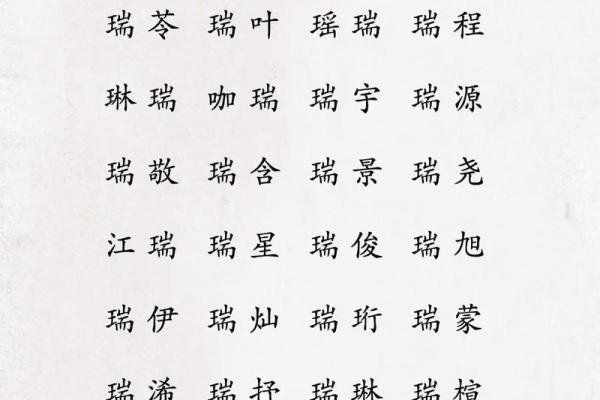 瑞苓 瑞叶 瑶瑞 瑞程
琳瑞 咖瑞 瑞宇 瑞源
瑞敬 瑞含 瑞景 瑞尧
江瑞 瑞星 瑞俊 瑞旭
瑞伊 瑞灿 瑞珩 瑞蒙
瑞浠 瑞抒 瑞琳 瑞楦